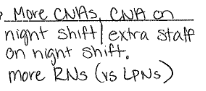 More CNAs, CNA on
night shift/extra staff
on night shift.
more RNs (vs LPNs)